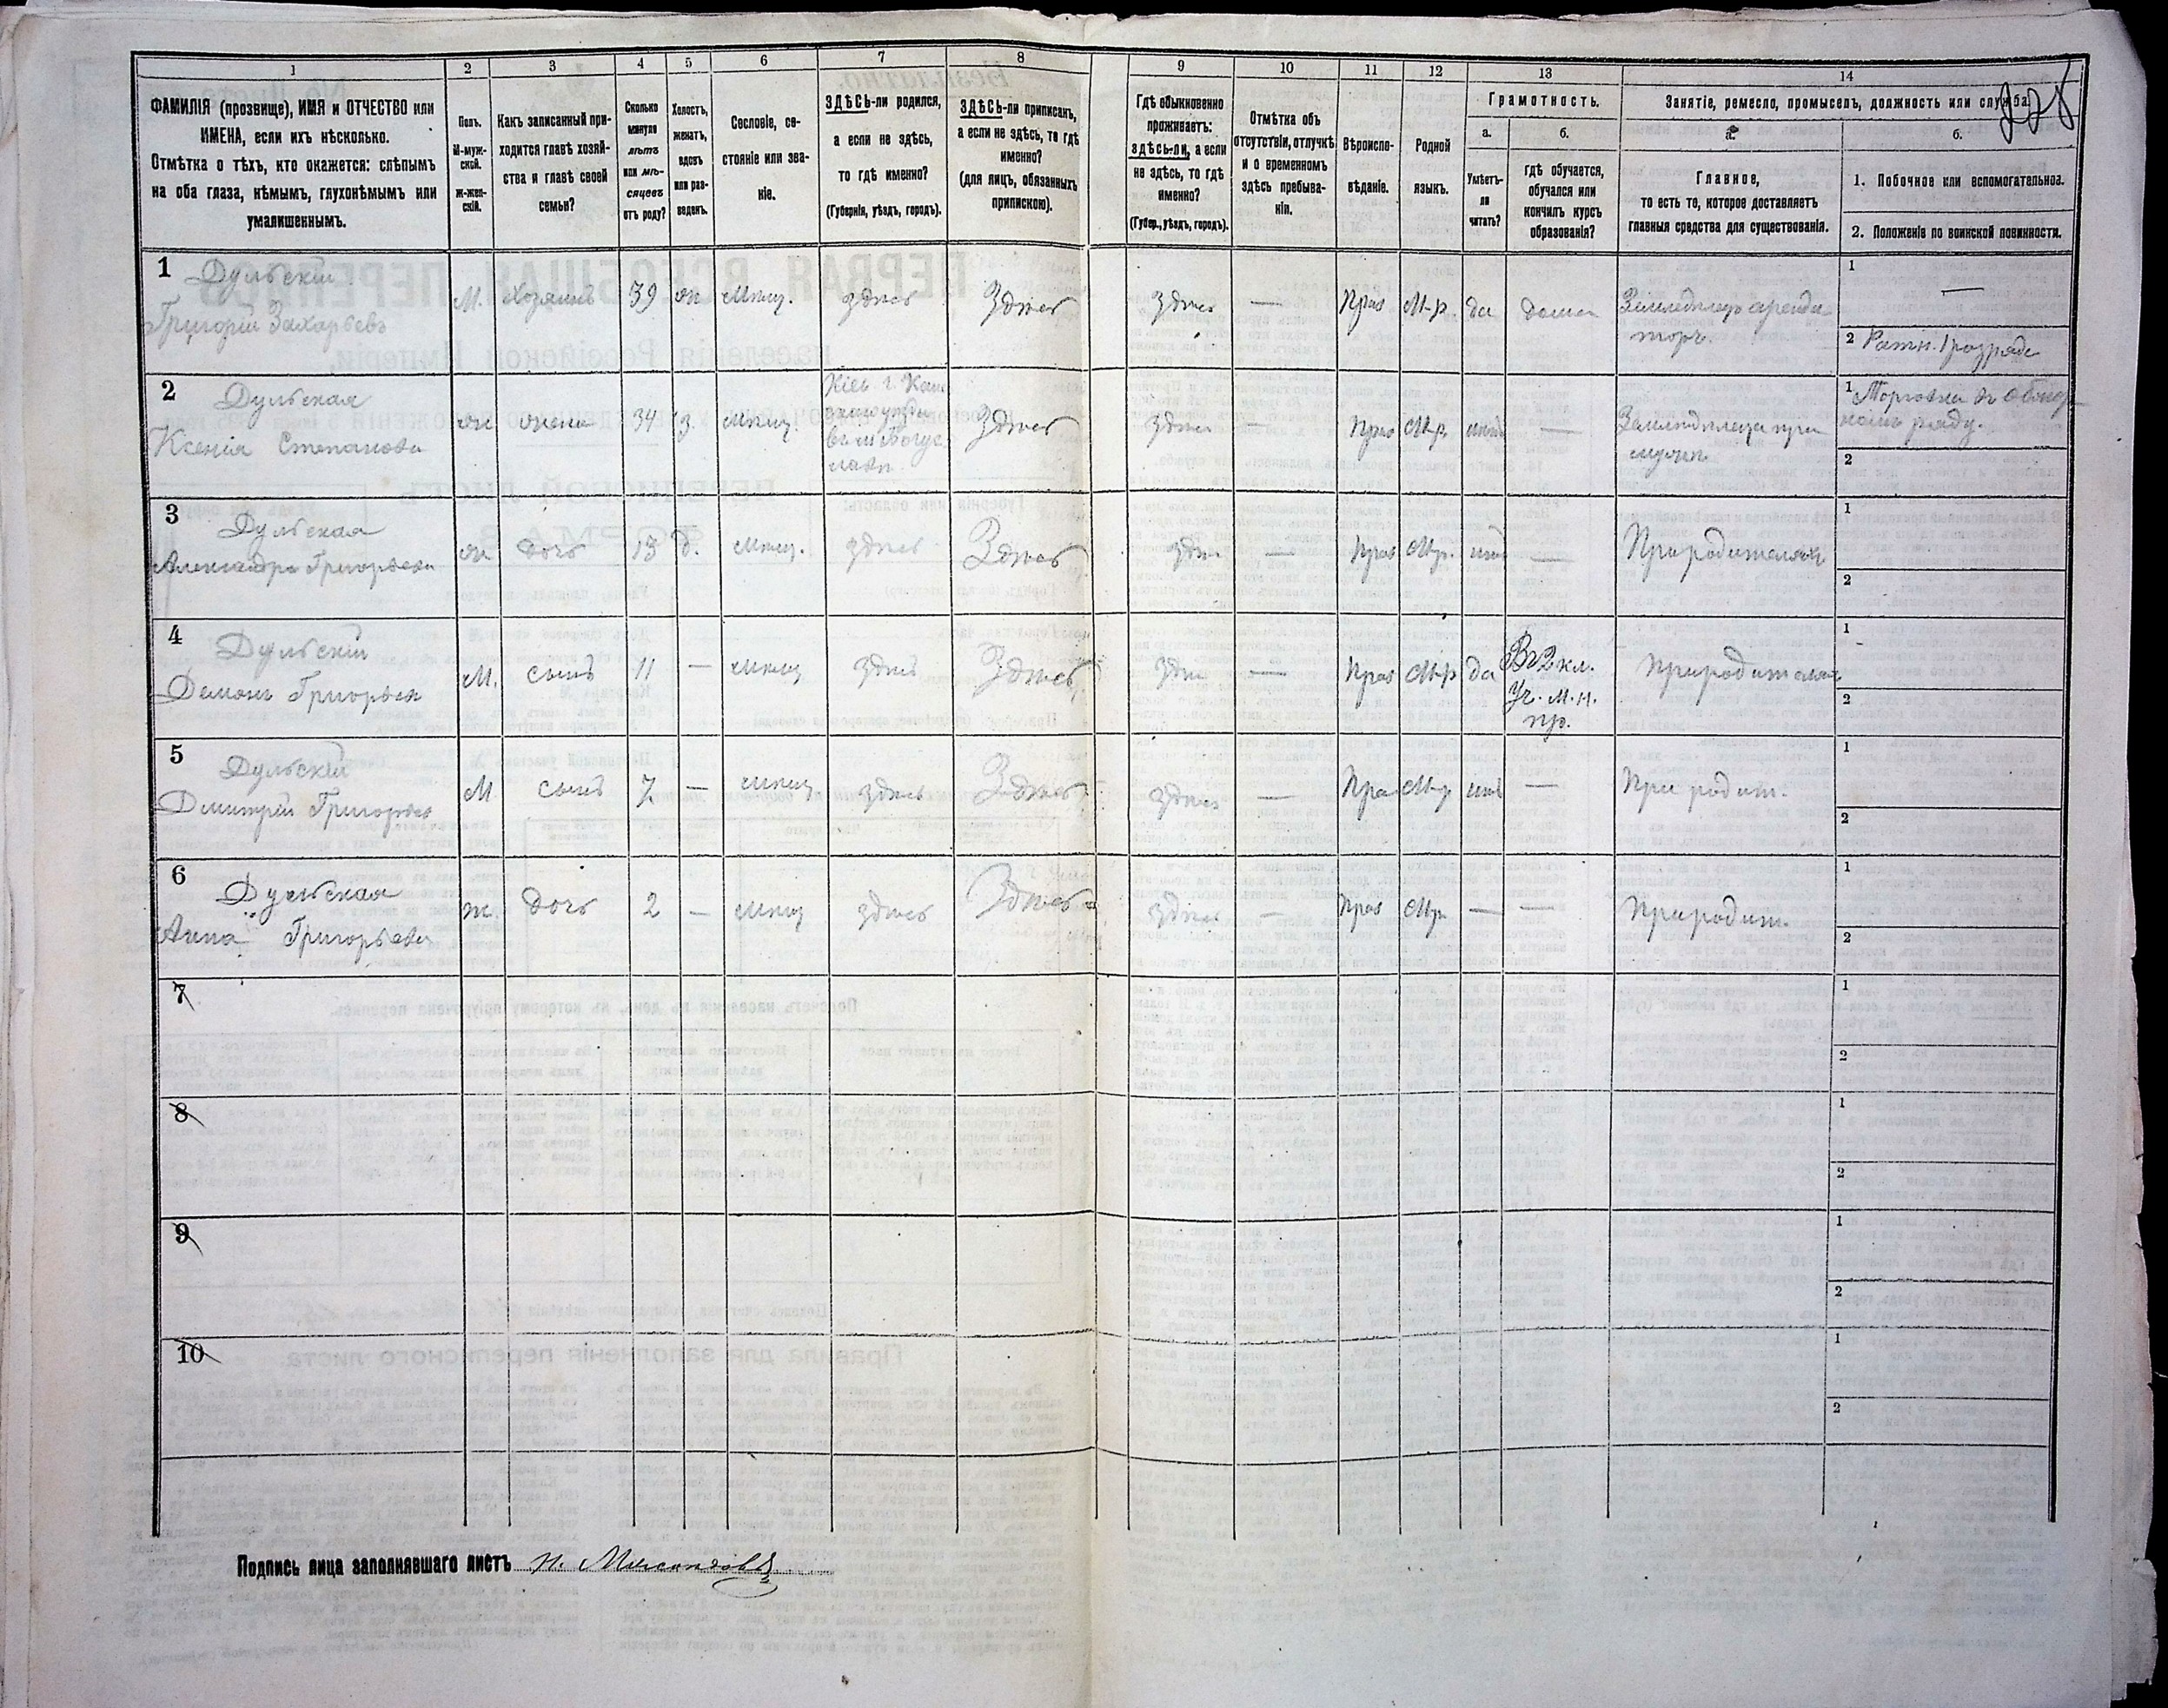 228
1
2
3
4
5
6
7
8
9
10
11
12
13
14
ФАМИЛІЯ (прозвище), ИМЯ и ОТЧЕСТВО или
ИМЕНА, если ихъ нѣсколько.
Отмѣтка о тѣхъ, кто окажется: слѣпымъ
на оба глаза, нѣмымъ, глухонѣмымъ или
умалишеннымъ.
Полъ.
М-муж-
ской.
Ж-жен-
скій.
Какъ записанный при-
ходится главѣ хозяй-
ства и главѣ своей
семьи?
Сколько
минуло
лѣтъ
или мѣ-
сяцевъ
отъ роду?
Холостъ,
женатъ,
вдовъ
или раз-
веденъ.
Сословіе, со-
стояніе или зва-
ніе.
ЗДѢСЬ-ли родился,
а если не здѣсь,
то гдѣ именно?
(Губернія, уѣздъ, городъ).
ЗДѢСЬ-ли приписанъ,
а если не здѣсь, то гдѣ
именно?
(для лицъ, обязанныхъ
припискою).
Гдѣ обыкновенно
проживаетъ:
здѣсь-ли, а если
не здѣсь, то гдѣ
именно?
(Губер., уѣздъ, городъ).
Отмѣтка объ
отсутствіи, отлучкѣ
и о временномъ
здѣсь пребыва-
ніи.
Вѣроиспо-
вѣданіе.
Родной
языкъ.
Грамотность.
а.
Умѣетъ-
ли
читать?
б.
гдѣ обучается,
обучался или
кончилъ курсъ
образованія?
Занятіе, ремесло, промыселъ, должность или служба.
а.
Главное,
то есть то, которое доставляетъ
главныя средства для существованія.
б.
1. Побочное или вспомогательное.
2. Положеніе по воинской повинности.
1 Дульскій
Григорій Захарьевъ
М. Хозяинъ 39 ж мѣщ. здѣсь Здѣсь здѣсь — Прав М-р. да дома Земледѣлецъ аренда
торъ.
1 —
2 Ратн. 1 разряда
2 Дульская
Ксенія Степанова
ж жена 34 з. мѣщ.
Кіев г Кан
скаго уѣзда
въ м Богус
лавѣ
Здѣсь здѣсь — Прав М-р. нѣтъ — Земледѣлица при
мужѣ
1 Торговка въ обжор
номъ ряду.
2
3 Дульская
Александра Григорьева
ж дочь 13 д. мѣщ. здѣсь Здѣсь здѣсь — Прав М-р. нѣтъ — При родителяхъ
1
2
4 Дульскій
Демьянъ Григорьев
М. сынъ 11 — мѣщ здѣсь Здѣсь здѣсь — Прав М-р да Въ 2 кл.
Уч. м. н.
пр.
При родителяхъ
1
2
5 Дульскій
Дмитрій Григорьев
М сынъ 7 — мѣщ здѣсь Здѣсь здѣсь — Прав М-р нѣтъ — При родит.
1
2
6 Дульская
Анна Григорьева
ж. дочь 2 — мѣщ здѣсь Здѣсь здѣсь — Прав М-р — — При родит.
1
2
7
1
2
8
1
2
9
1
2
10
1
2
Подпись лица заполнявшаго листъ